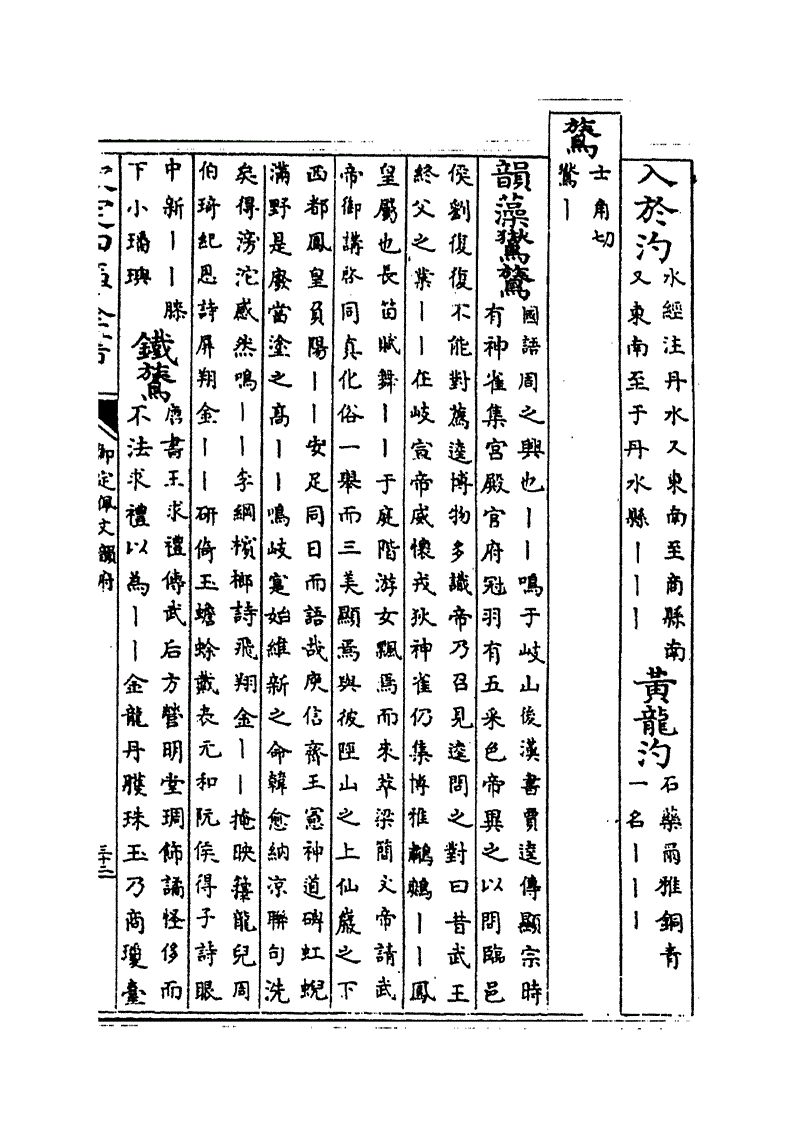 入於汋水經注丹水又東南至商縣南
又東南至于丹水縣丨丨丨
黃龍汋石藥爾雅銅青
一名丨丨丨
鷟士角切
鷟丨
韻藻鸑鷟國語周之興也丨丨鳴于岐山後漢書賈逵傳顯宗時
有神雀集宮殿官府冠羽有五采色帝異之以問臨邑
侯劉復復不能對薦逵博物多識帝乃召見逵問之對曰昔武王
終父之業丨丨在岐宣帝威懷戎狄神雀仍集博雅鷫鷞丨丨鳳
皇屬也長笛賦舞丨丨于庭階游女飄焉而來萃梁簡文帝請武
帝御講啓同真化俗一舉而三美顯焉與彼陘山之上仙巖之下
西都鳳皇負陽丨丨安足同日而語哉庾信齊王憲神道碑虹蜺
滿野是廢當塗之高丨丨鳴岐寔始維新之命韓愈納凉聯句洗
矣得滂沱感然鳴丨丨李綱檳榔詩飛翔金丨丨掩映籜龍兒周
伯琦紀恩詩屏翔金丨丨研倚玉蟾蜍戴表元和阮侯得子詩眼
中新丨丨膝
下小璠璵
鐵鷟唐書王求禮傳武后方營明堂琱飾譎怪侈而
不法求禮以為丨丨金龍丹雘珠玉乃商瓊臺
御定佩文韻府
三十二